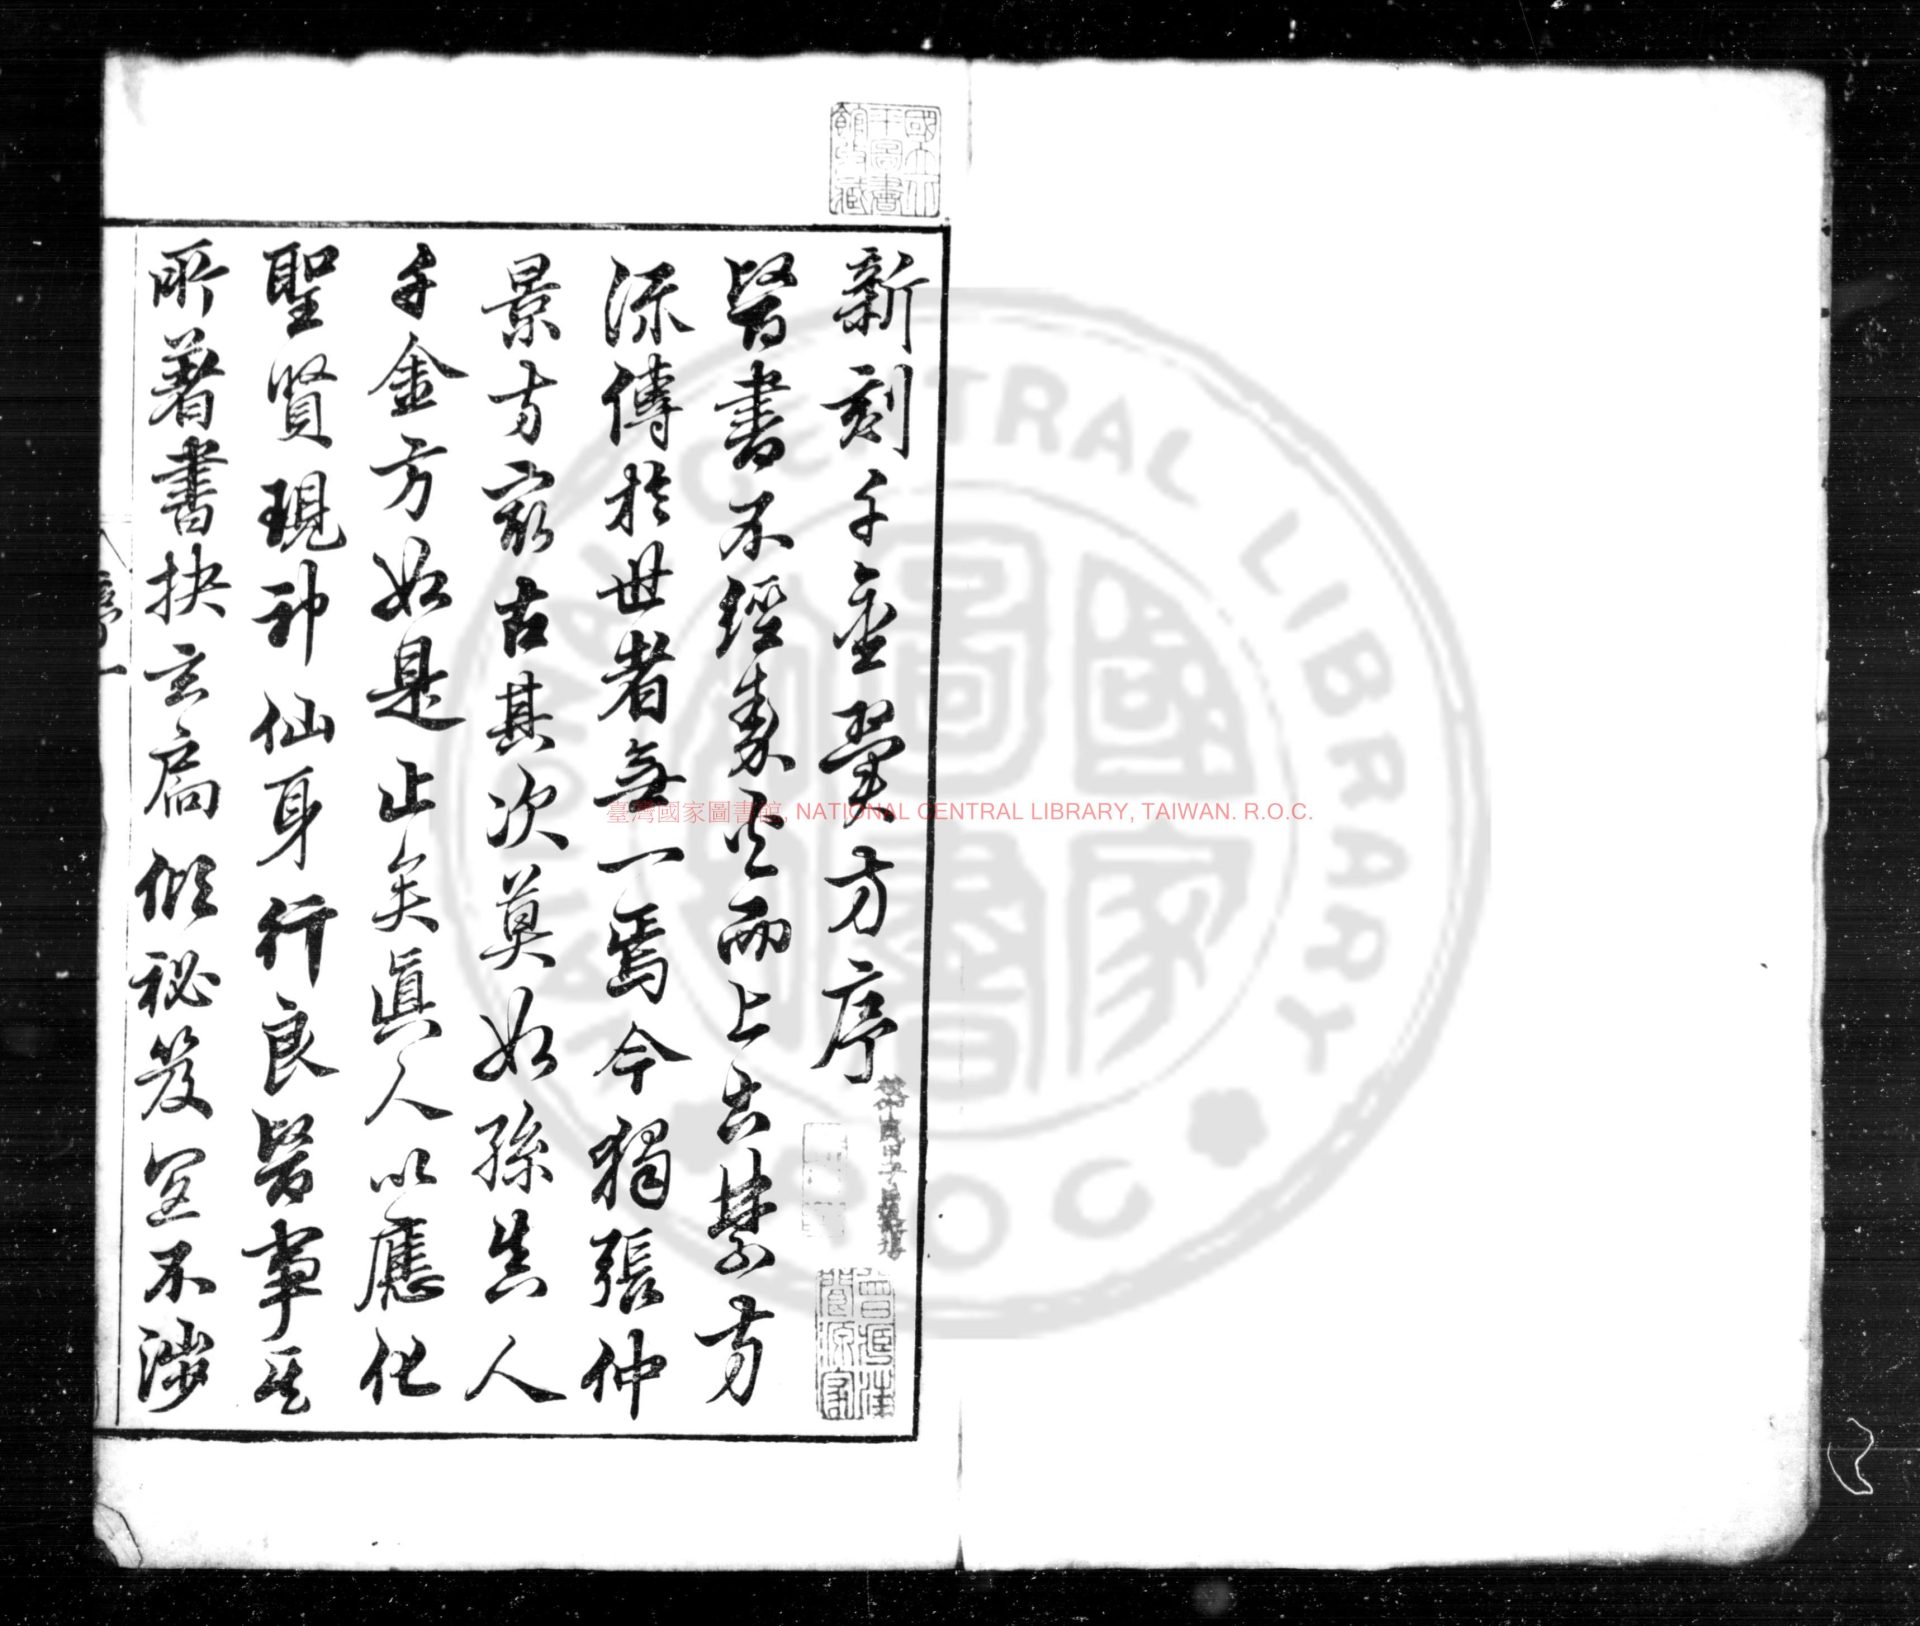 國立北
平圖書
館收藏
新刻千金翼方序
醫書不經秦火而上古禁方
流傳於世者無一焉今獨張仲
景方最古其次莫如孫真人
千金方如是止矣眞人以應化
聖賢現神仙身行良醫事其
所著書抉玄扃傾秘笈宜不涉
序 一
臺灣國家圖書館, NATIONAL CENTRAL LIBRARY, TAIWAN. R.O.C.
NATIONAL CENTRAL LIBRARY
R.O.C
國家
圖書